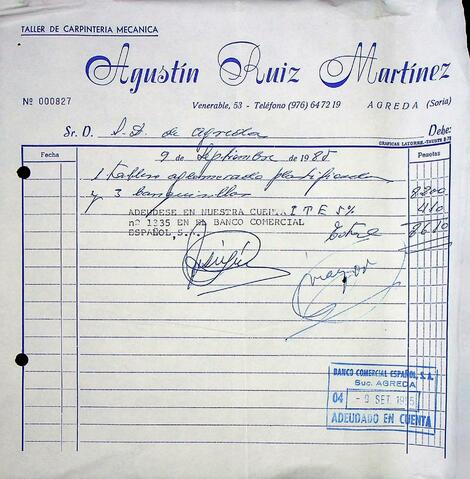 TALLER DE CARPINTERIA MECANICA
Agustín Ruiz Martínez
Nº 000827
Venerable, 53 - Teléfono (976) 64 72 19
AGREDA (Soria)
Sr. D. S.D. de Agreda Debe:
Fecha
9 de Septiembre de 1985
Pesetas
1 tablero aglomerado plastificado
y 3 banquillas 8200
ADEUDESE EN NUESTRA CUENTA I T E 5% 410
nº 1335 EN EL BANCO COMERCIAL
ESPAÑOL, S.A. Total 8610
BANCO COMERCIAL ESPAÑOL, S. A.
Suc. AGREDA
04 - 9 SET 1985
ADEUDADO EN CUENTA